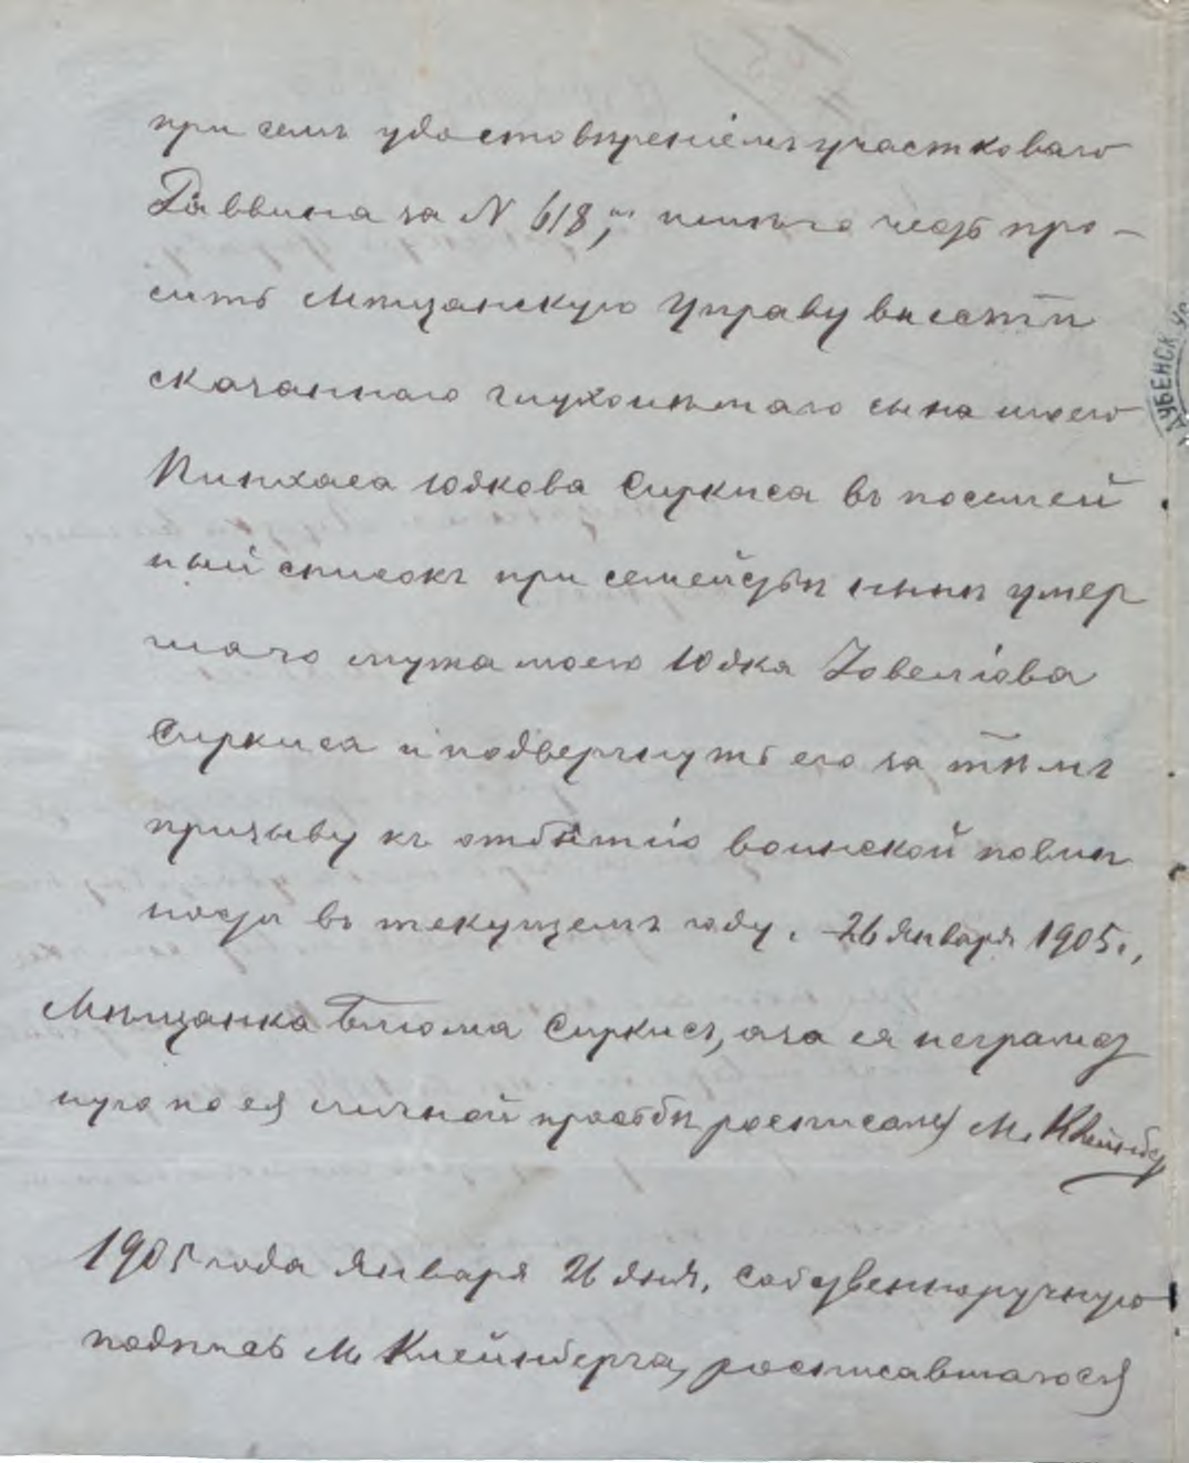 при семъ удостовѣреніемъ участковаго
Раввина за N 618, имѣю честь про-
сить Мѣщанскую Управу внести
сказаннаго глухонѣмаго сына моего
Пинхаса Юдкова Сиркиса въ посемей
ный списокъ при семействѣ нынѣ умер
шаго мужа моего Юдка Іовеліова
Сиркиса и подвергнуть его за тѣмъ
призыву къ отбытію воинской повин
ности въ текущемъ году. 26 Января 1905 г.,
Мѣщанка Блюма Сиркисъ, а за ея неграмот
ную по ея личной просьбѣ росписался М. Клейнбер
1905 года Января 26 дня, собственноручную
подпись М. Клейнберга, росписавшагося
ДУБЕНСК